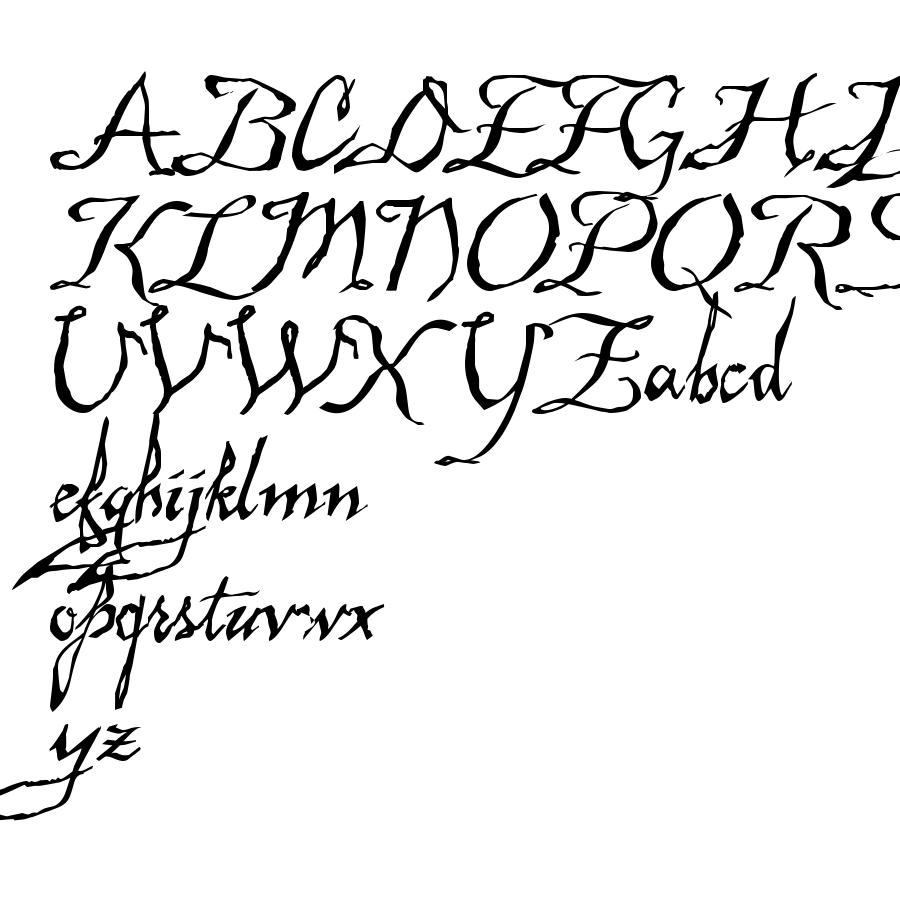 ABCDEFGHI
KLMNOPQRS
UVWXYZabcd
efghijklmn
opqrstuvwx
yz